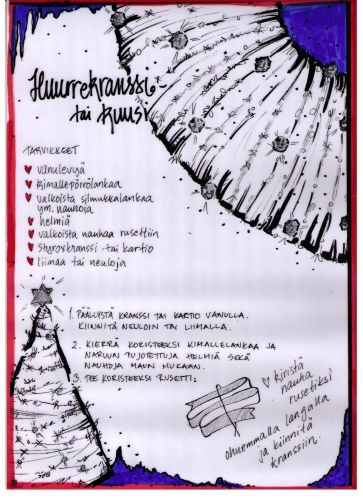 Huurrekranssi
tai kuusi
TARVIKKEET
♥ vanulevyä
♥ kimallepörrölankaa
♥ valkoista silmukkalankaa
ym. nauhoja
♥ helmiä
♥ valkoista nauhaa rusettiin
♥ styroxkranssi tai kartio
♥ liimaa tai neuloja
1. PÄÄLLYSTÄ KRANSSI TAI KARTIO VANULLA.
KIINNITÄ NEULOIN TAI LIIMALLA.
2. KIERRÄ KORISTEEKSI KIMALLELANKAA JA
NARUUN PUJOTETTUJA HELMIÄ SEKÄ
NAUHOJA MAUN MUKAAN.
3. TEE KORISTEEKSI RUSETTI:
♡ kiristä
nauha
rusetiksi
ohuemmalla langalla
ja kiinnitä
kranssiin.